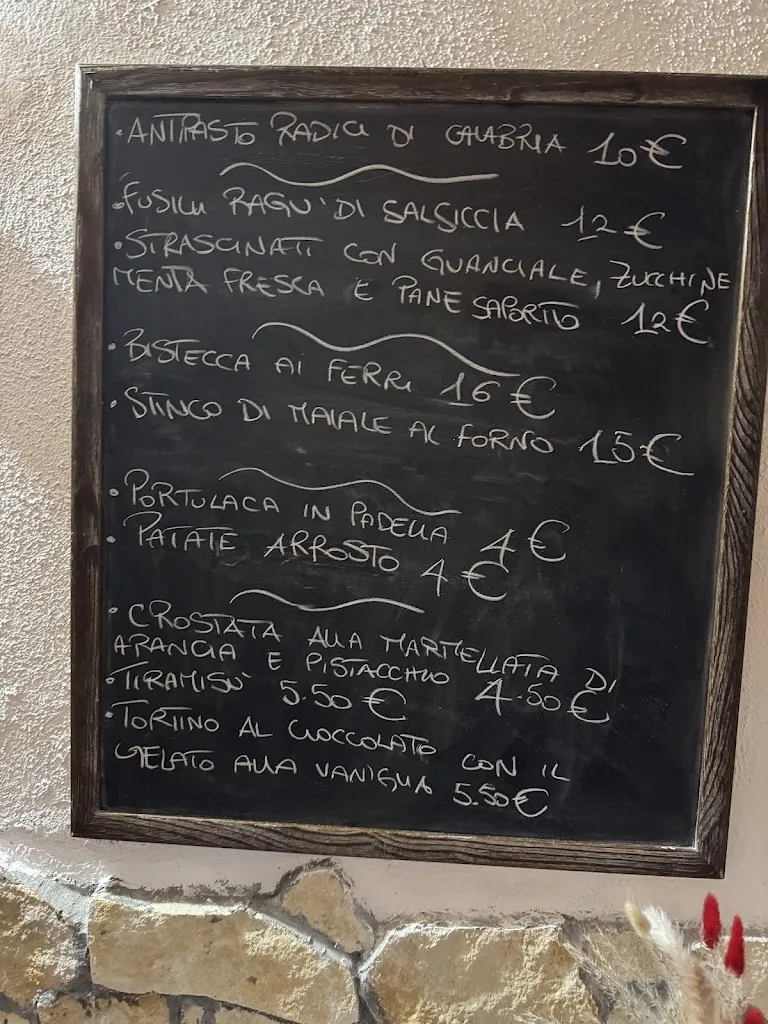 • ANTIPASTO RADICI DI CALABRIA 10€
• FUSILLI RAGU' DI SALSICCIA 12€
• STRASCINATI CON GUANCIALE, ZUCCHINE
MENTA FRESCA E PANE SAPORITO 12€
• BISTECCA AI FERRI 16€
• STINCO DI MAIALE AL FORNO 15€
• PORTULACA IN PADELLA 4€
• PATATE ARROSTO 4€
• CROSTATA ALLA MARMELLATA DI
ARANCIA E PISTACCHIO 4.50€
• TIRAMISU' 5.50€
• TORTINO AL CIOCCOLATO CON IL
GELATO ALLA VANIGLIA 5.50€